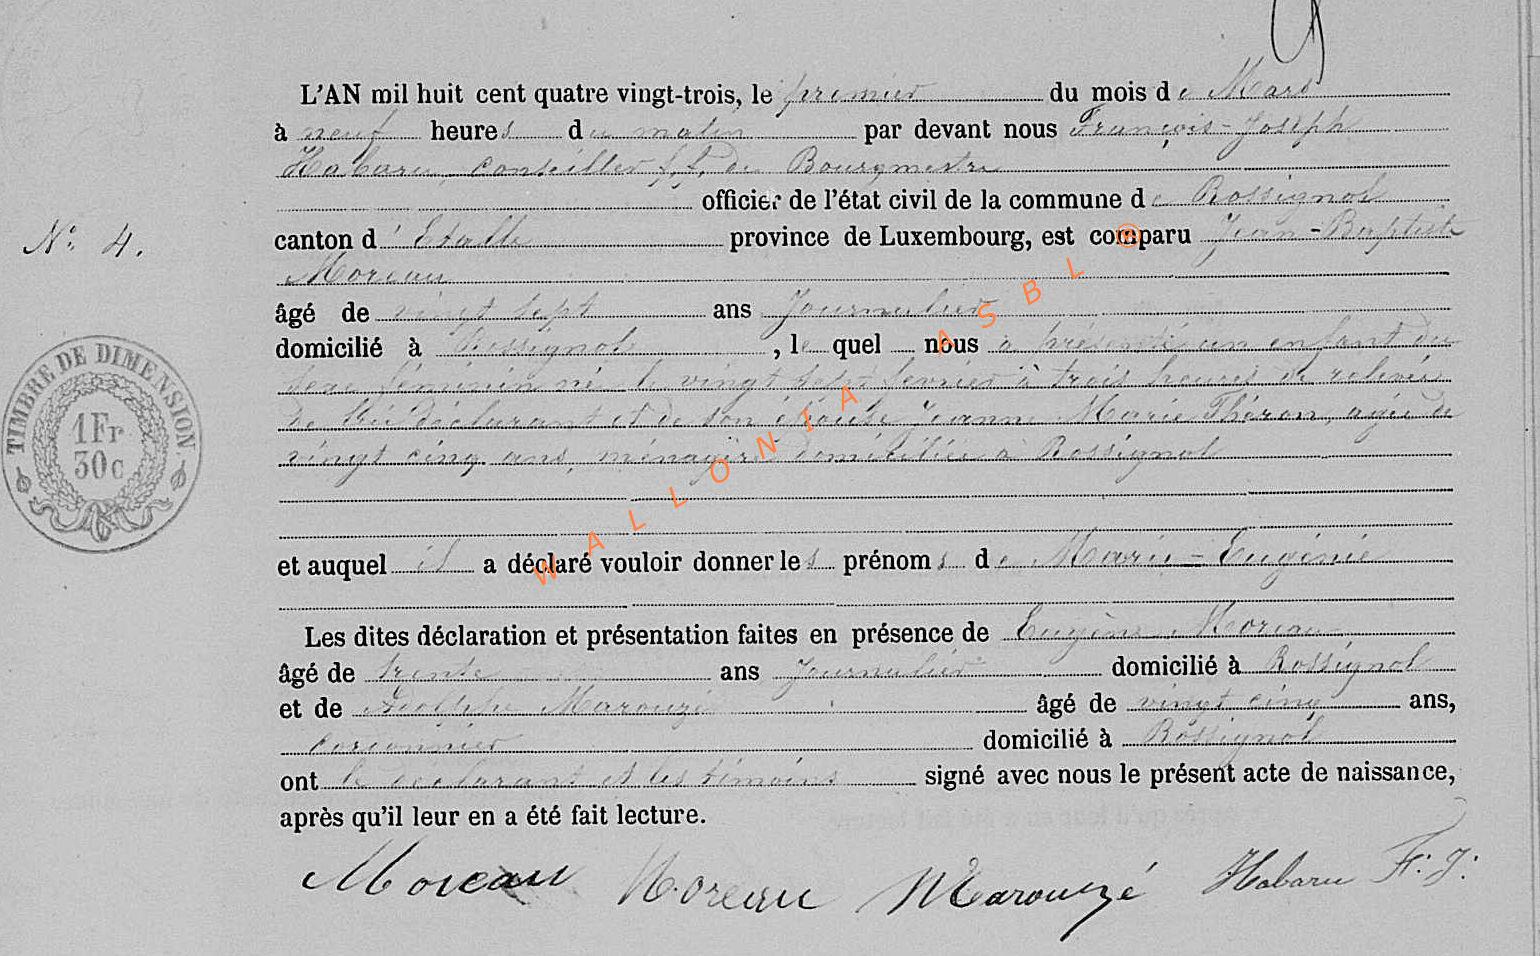 L'AN mil huit cent quatre vingt-trois, le premier du mois de Mars
à neuf heures du matin par devant nous François-Joseph
Habaru, Conseiller f.f. de Bourgmestre
officier de l'état civil de la commune de Rossignol
canton d'Etalle province de Luxembourg, est comparu Jean-Baptiste
Moreau
N° 4.
âgé de vingt sept ans Journalier
domicilié à Rossignol, le quel nous a présenté un enfant du
sexe féminin né le vingt sept fevrier à trois heures de relevée
de lui déclarant et de son épouse Jeanne Marie Théron, agée de
vingt cinq ans, ménagère domiciliée à Rossignol
et auquel il a déclaré vouloir donner les prénoms de Marie-Eugénie
Les dites déclaration et présentation faites en présence de Eugène Moreau
âgé de trente ans Journalier domicilié à Rossignol
et de Adolphe Marouzé âgé de vingt cinq ans,
cordonnier domicilié à Rossignol
ont le déclarant et les témoins signé avec nous le présent acte de naissance,
après qu'il leur en a été fait lecture.
Moreau Moreau Marouzé Habaru F. J.
TIMBRE DE DIMENSION.
1 Fr
30 c
WALLONIA ASBL ®